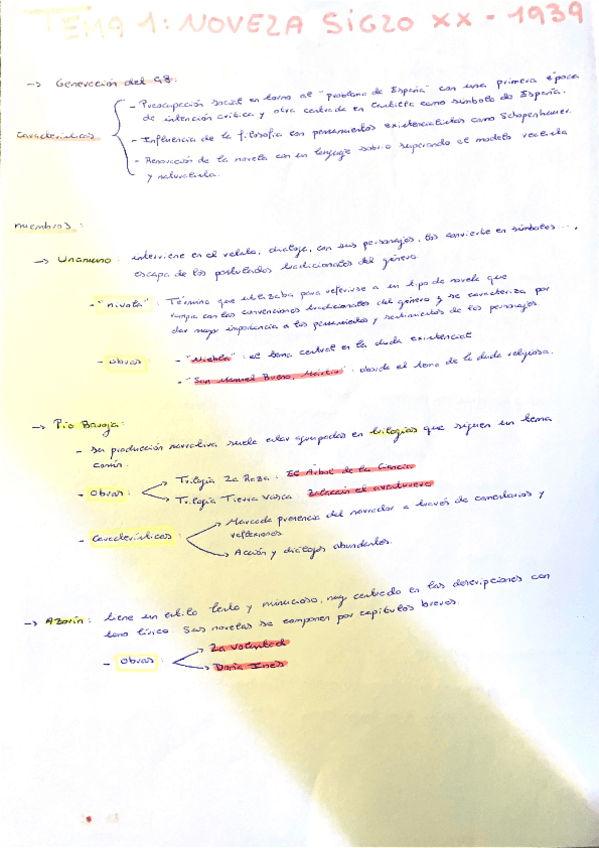 TEMA 1: NOVELA SIGLO XX - 1939
→ Generación del 98:
Características
- Preocupación social en torno al "problema de España" con una primera época
de intención crítica y otra centrada en Castilla como símbolo de España.
- Influencia de la filosofía con pensamientos existencialistas como Schopenhauer.
- Renovación de la novela con un lenguaje sobrio superando el modelo realista
y naturalista.
miembros:
→ Unamuno: interviene en el relato, dialoga, con sus personajes, los convierte en símbolos...,
escapa de los postulados tradicionales del género.
- "nivola": Término que utilizaba para referirse a un tipo de novela que
rompía con las convenciones tradicionales del género y se caracteriza por
dar mayor importancia a los pensamientos y sentimientos de los personajes
- Obras: - "Niebla": el tema central es la duda existencial
- "San Manuel Bueno, Mártir": aborda el tema de la duda religiosa.
→ Pío Baroja:
- Su producción narrativa suele estar agrupadas en trilogías que siguen un tema
común.
- Obras: → Trilogía La Raza: El Árbol de la Ciencia
→ Trilogía Tierra Vasca: Zalacaín el aventurero
- Características: → Marcada presencia del narrador a través de comentarios y
reflexiones.
→ Acción y diálogos abundantes.
→ Azorín: tiene un estilo lento y minucioso, muy centrado en las descripciones con
tono lírico. Sus novelas se componen por capítulos breves.
- Obras: → La voluntad
→ Doña Inés